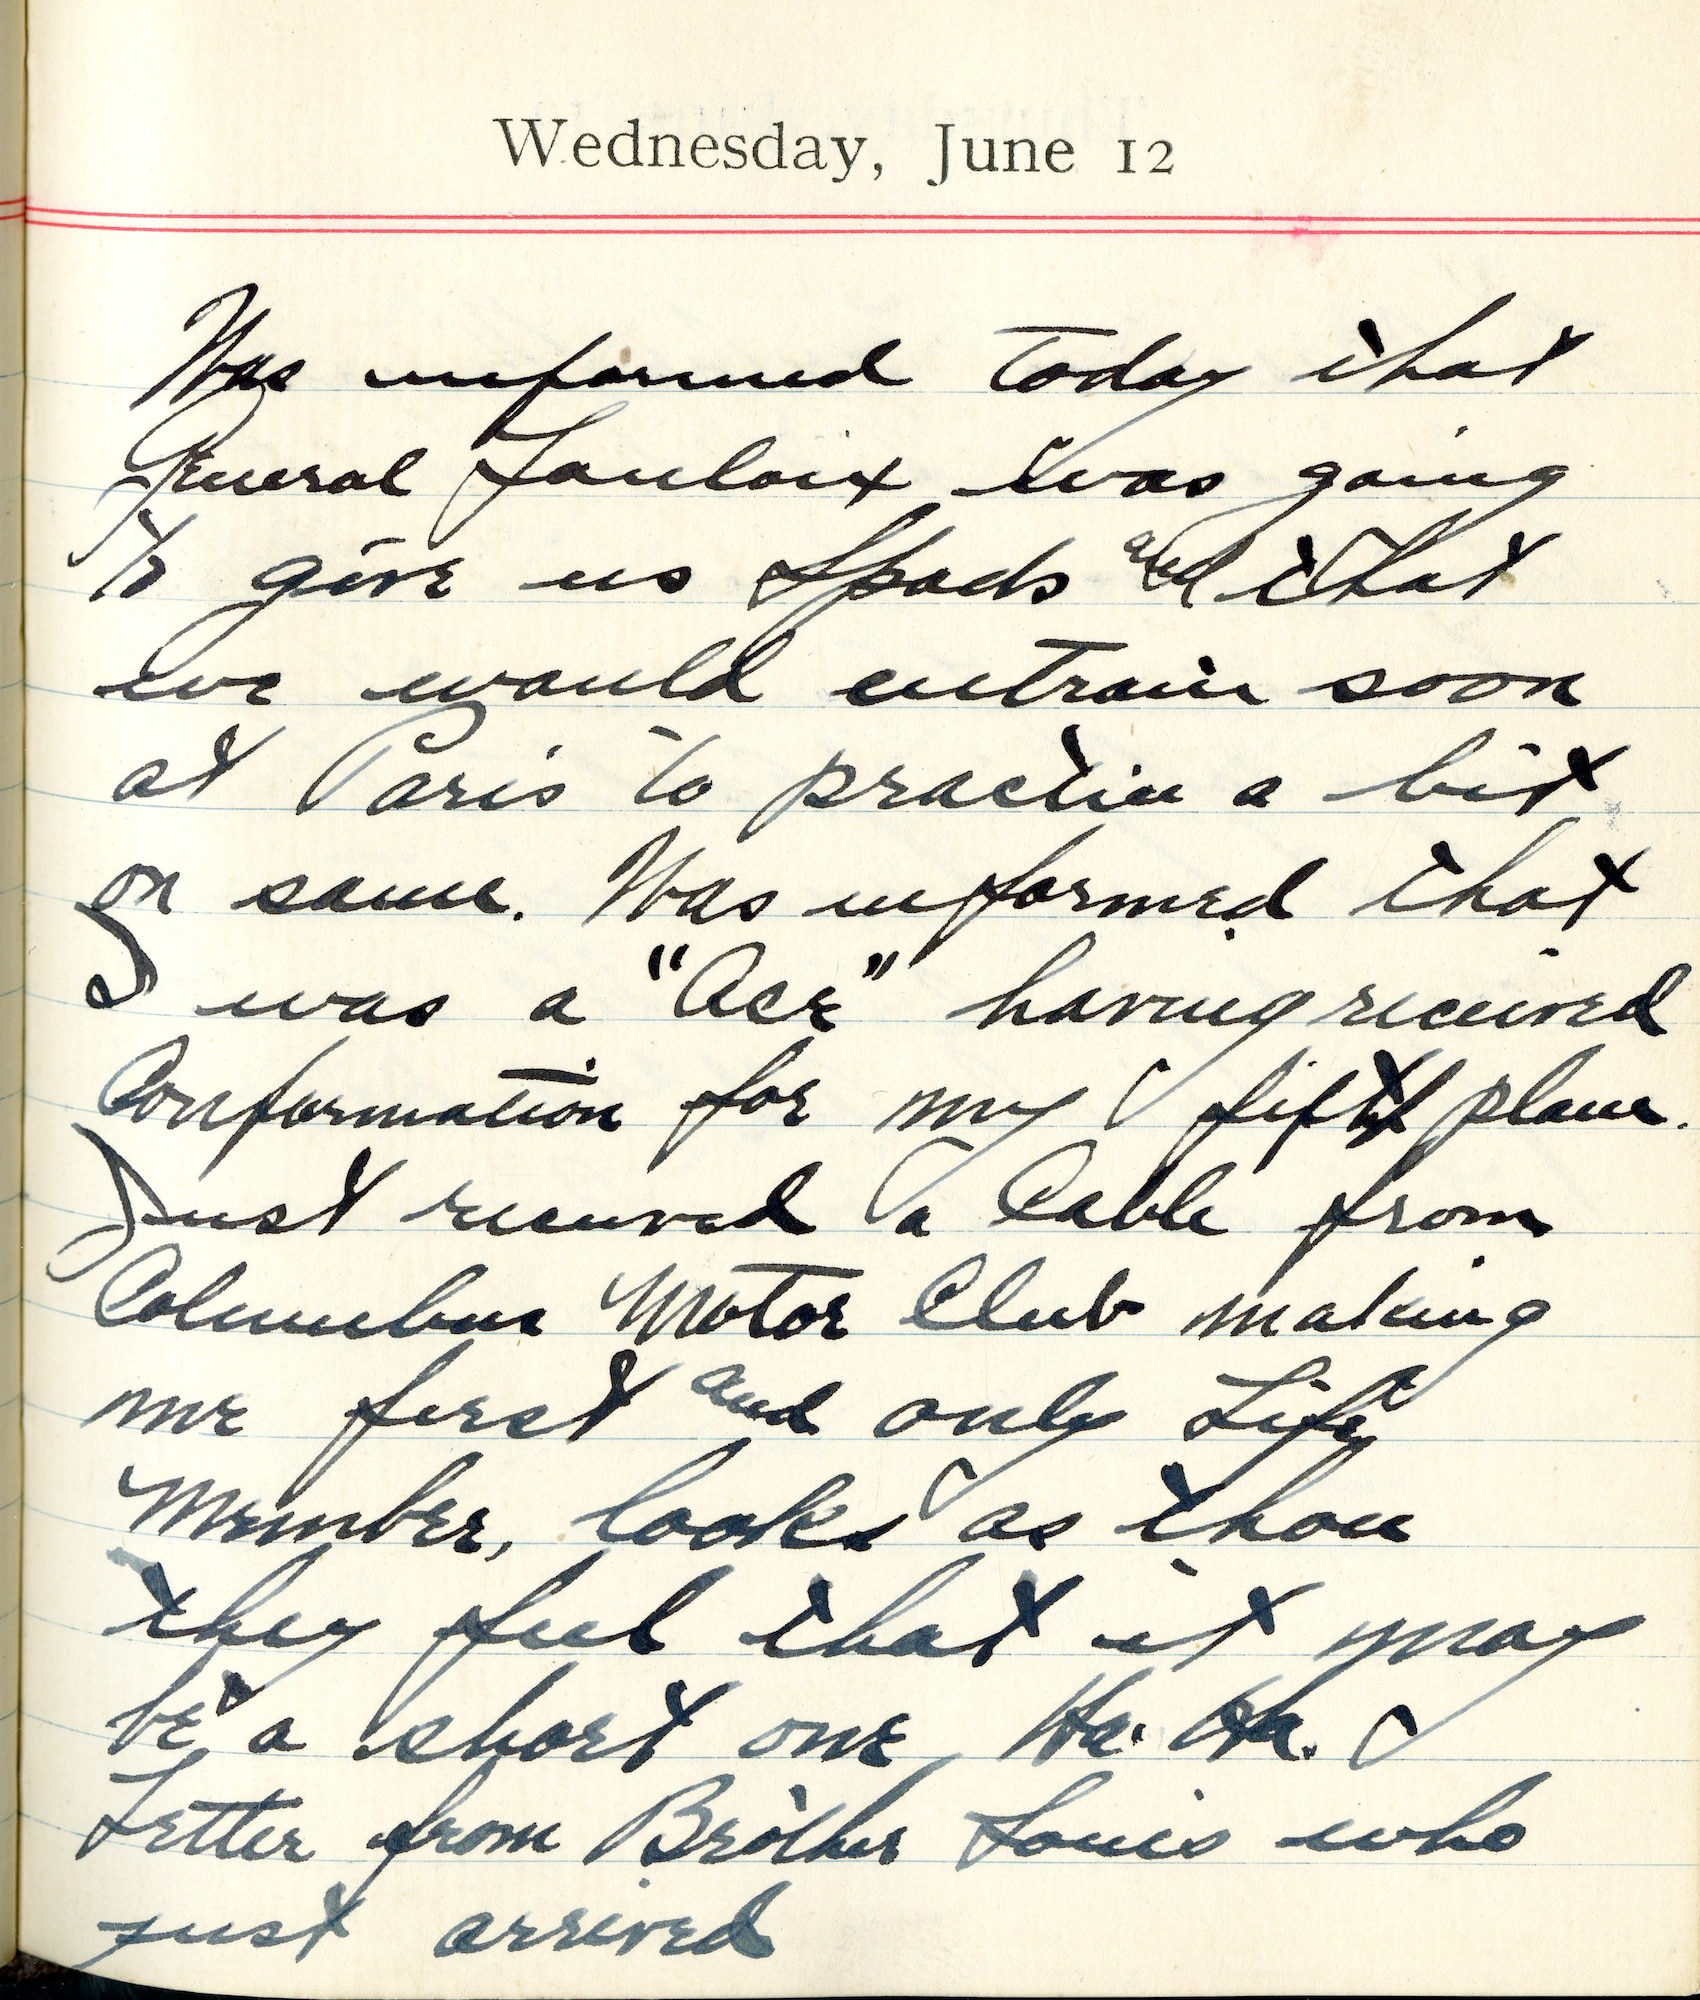 Wednesday, June 12
Was informed today that
General Fouloix was going
to give us Spads and that
we would entrain soon
at Paris to practice a bit
on same. Was informed that
I was a "Ace" having received
Conformation for my fifth plane.
Just received a Cable from
Columbus Motor Club making
me first and only Life
Member, looks as thou
they feel that it may
be a short one, Ha. Ha.
Letter from Brother Louis who
just arrived